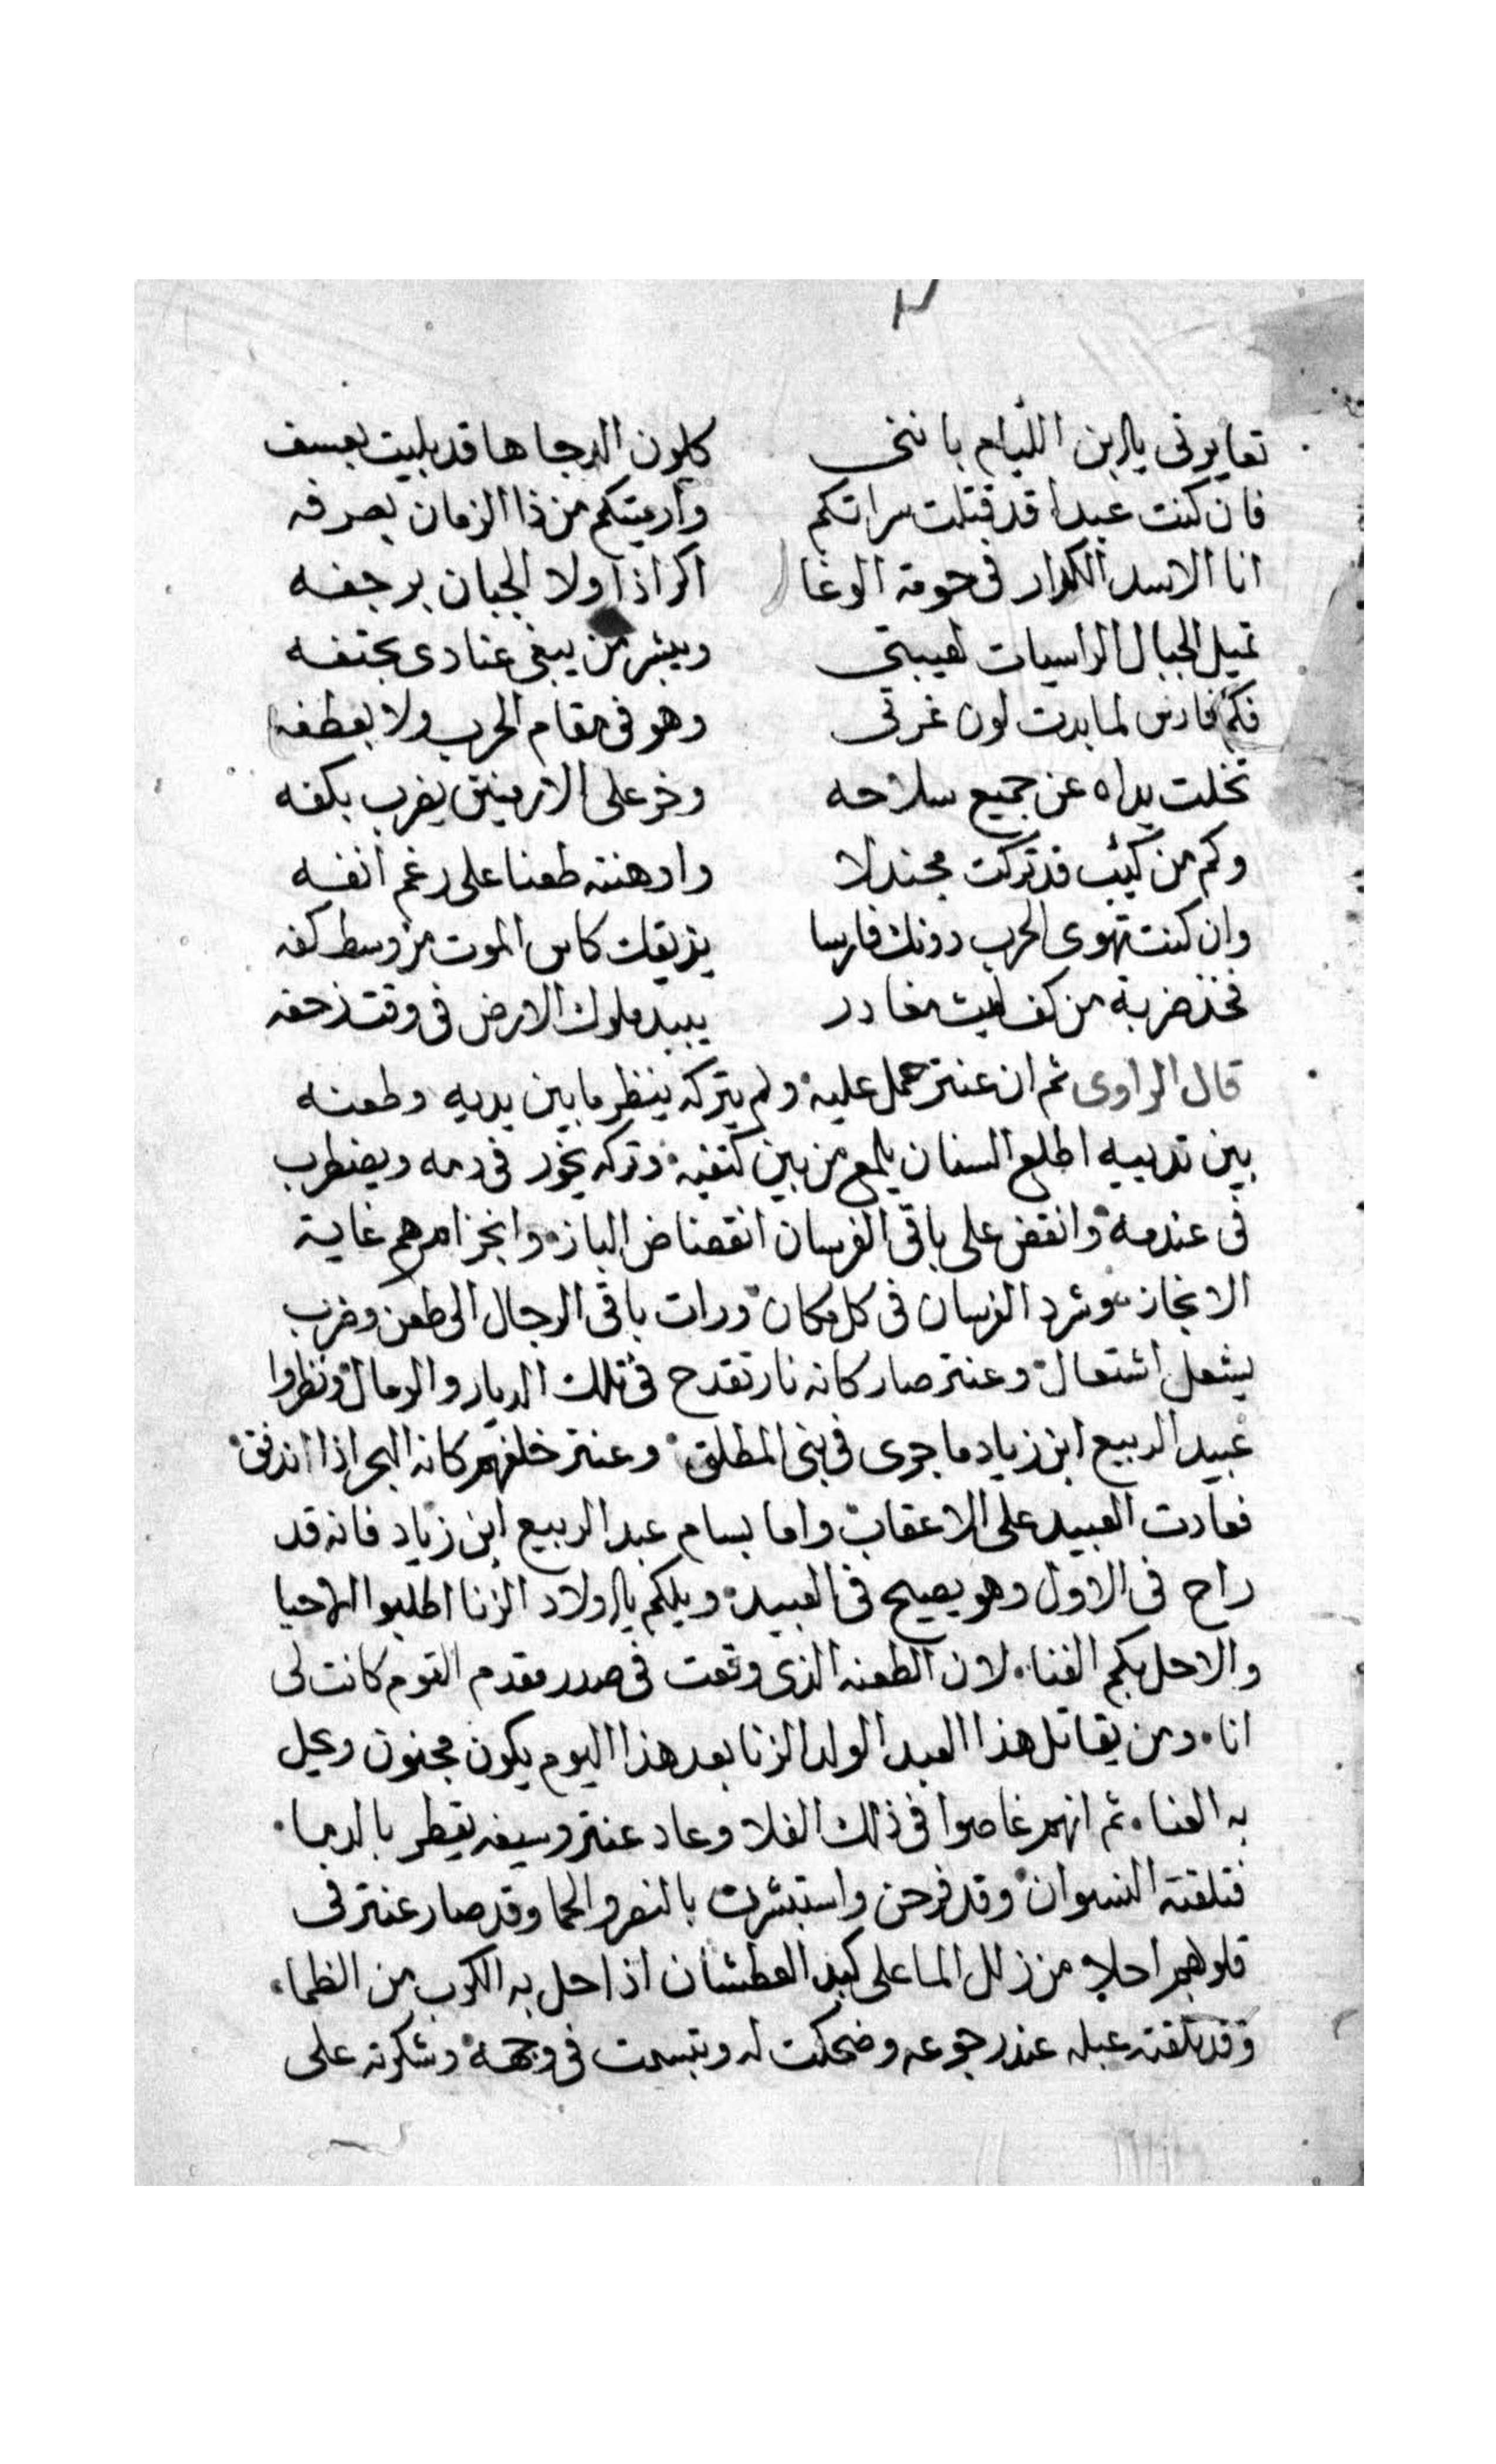 تعايرني يا ابن اللئام بانني كلون الدجا ها قد بليت بعسف
فان كنت عبدا قد قتلت سراتكم واريتكم من ذا الزمان بصرفه
انا الاسد الكرار في حومة الوغا اكر اذا ولا الجبان برجفه
تميل الجبال الراسيات لهيبتي ويبشر من يبغي عنادي بحتفه
فكم فارس لما بدت لون غرتي وهو في مقام الحرب ولا بعطفه
تخلت يداه عن جميع سلاحه وخر على الارضين يضرب بكفه
وكم من كئيب قد تركت مجندلا واوهنته طعنا على رغم انفه
وان كنت تهوى الحرب دونك فارسا يذيقك كاس الموت من وسط كفه
فخذ ضربة من كف ليث مغادر يبيد ملوك الارض في وقت زحفه
قال الراوي ثم ان عنتر حمل عليه ولم يتركه ينظر ما بين يديه وطعنه
بين تدييه اطلع السنان يلمع من بين كتفيه وتركه يخور في دمه ويضطرب
في عندمه وانقض على باقي الفرسان انقضاض الباز وانجز امرهم غاية
الانجاز وشرد الفرسان في كل مكان ورات باقي الرجال الى طعن وضرب
يشعل اشتعال وعنتر صار كانه نار تقدح في تلك الديار والرمال ونظروا
عبيد الربيع ابن زياد ما جرى في بني المطلق وعنتر خلفهم كانه البحر اذا اندفق
فعادت العبيد على الاعقاب واما بسام عبد الربيع ابن زياد فانه قد
راح في الاول وهو يصيح في العبيد ويلكم يا اولاد الزنا اطلبوا الاحيا
والا حل بكم الفنا لان الطعنه الذي وقعت في صدر مقدم القوم كانت لي
انا ومن يقاتل هذا العبد الولد الزنا بعد هذا اليوم يكون مجنون ويحل
به العنا ثم انهم غاصوا في ذلك الفلا وعاد عنتر وسيفه يقطر بالدما
فتلقته النسوان وقد فرحن واستبشرت بالنصر والحما وقد صار عنتر في
قلوبهم احلا من زلال الما على كبد العطشان اذا حل به الكرب من الظما
وقد تلقته عبله عند رجوعه وضحكت له وتبسمت في وجهه وشكرته على